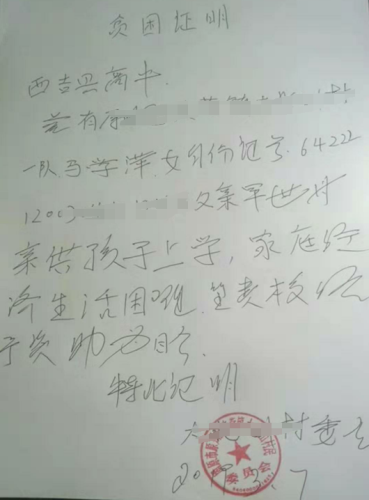 贫困证明
西吉县高中
兹有
一队马学萍女身份证号64222
1200 父亲早世母
亲供孩子上学，家庭经
济生活困难望贵校给
于资助为盼
特此证明
村委会
委员会